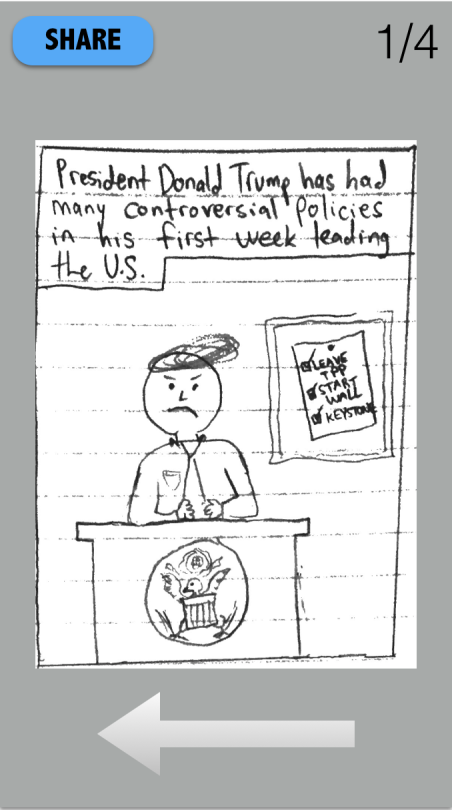 SHARE
1/4
President Donald Trump has had
many controversial policies
in his first week leading
the U.S.
LEAVE
TPP
START
WALL
KEYSTONE